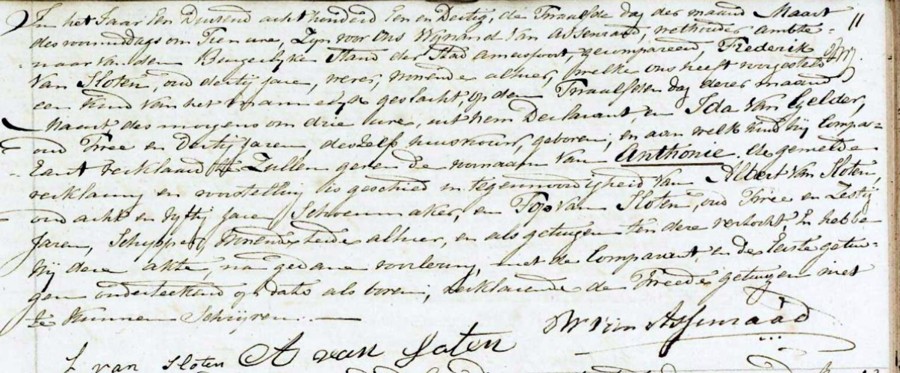 In het Jaar Een Duizend acht honderd Een en Dertig, de Twaalfde dag der maand Maart
des voormiddags om Tien ure, Zijn voor Ons Wijnand Van Assenraad, wethouder ambte-
naar van den Burgerlijke Stand der Stad Amersfoort, gecompareerd Frederik
Van Sloten, oud dertig jaren, wever, wonende alhier, welke ons heeft voorgesteld
een kind van het mannelijk geslacht, op den Twaalfden dag dezer maand
Maart des morgens om drie ure, uit hem Declarant, en Ida Van Gelder,
oud Twee en Dertig Jaren, deszelfs huisvrouw, geboren; en aan welk kind hij Compa-
rant verklaard te Zullen geven de voornaam van Anthonie. de gemelde
verklaring en voorstelling is geschied in tegenwoordigheid van Albert van Sloten,
oud acht en vijftig Jaren Schoenmaker, en Van Sloten, oud Twee en Zestig
Jaren, Schipper, Wonende beide alhier, en als getuigen ten deze verzocht, En hebben
Wij deze akte, na gedane voorlezing, met de Comparant en de Eerste getui-
gen onderteekend op dato als boven, Verklarende de Tweede getuigen niet
te Kunnen Schrijven.
W Van Assenraad
f van sloten A van sloten